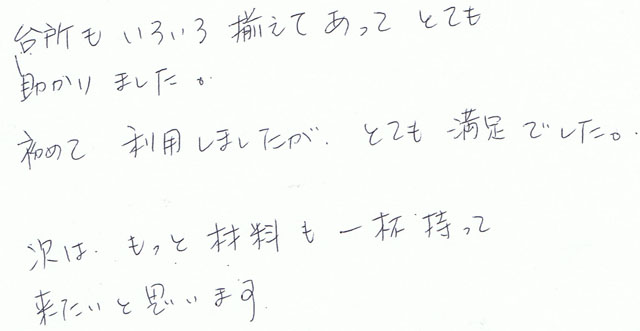 台所も いろいろ 揃えてあって とても
助かりました。
初めて 利用しましたが、とても 満足でした。
次は、もっと 材料も 一杯 持って
来たいと思います